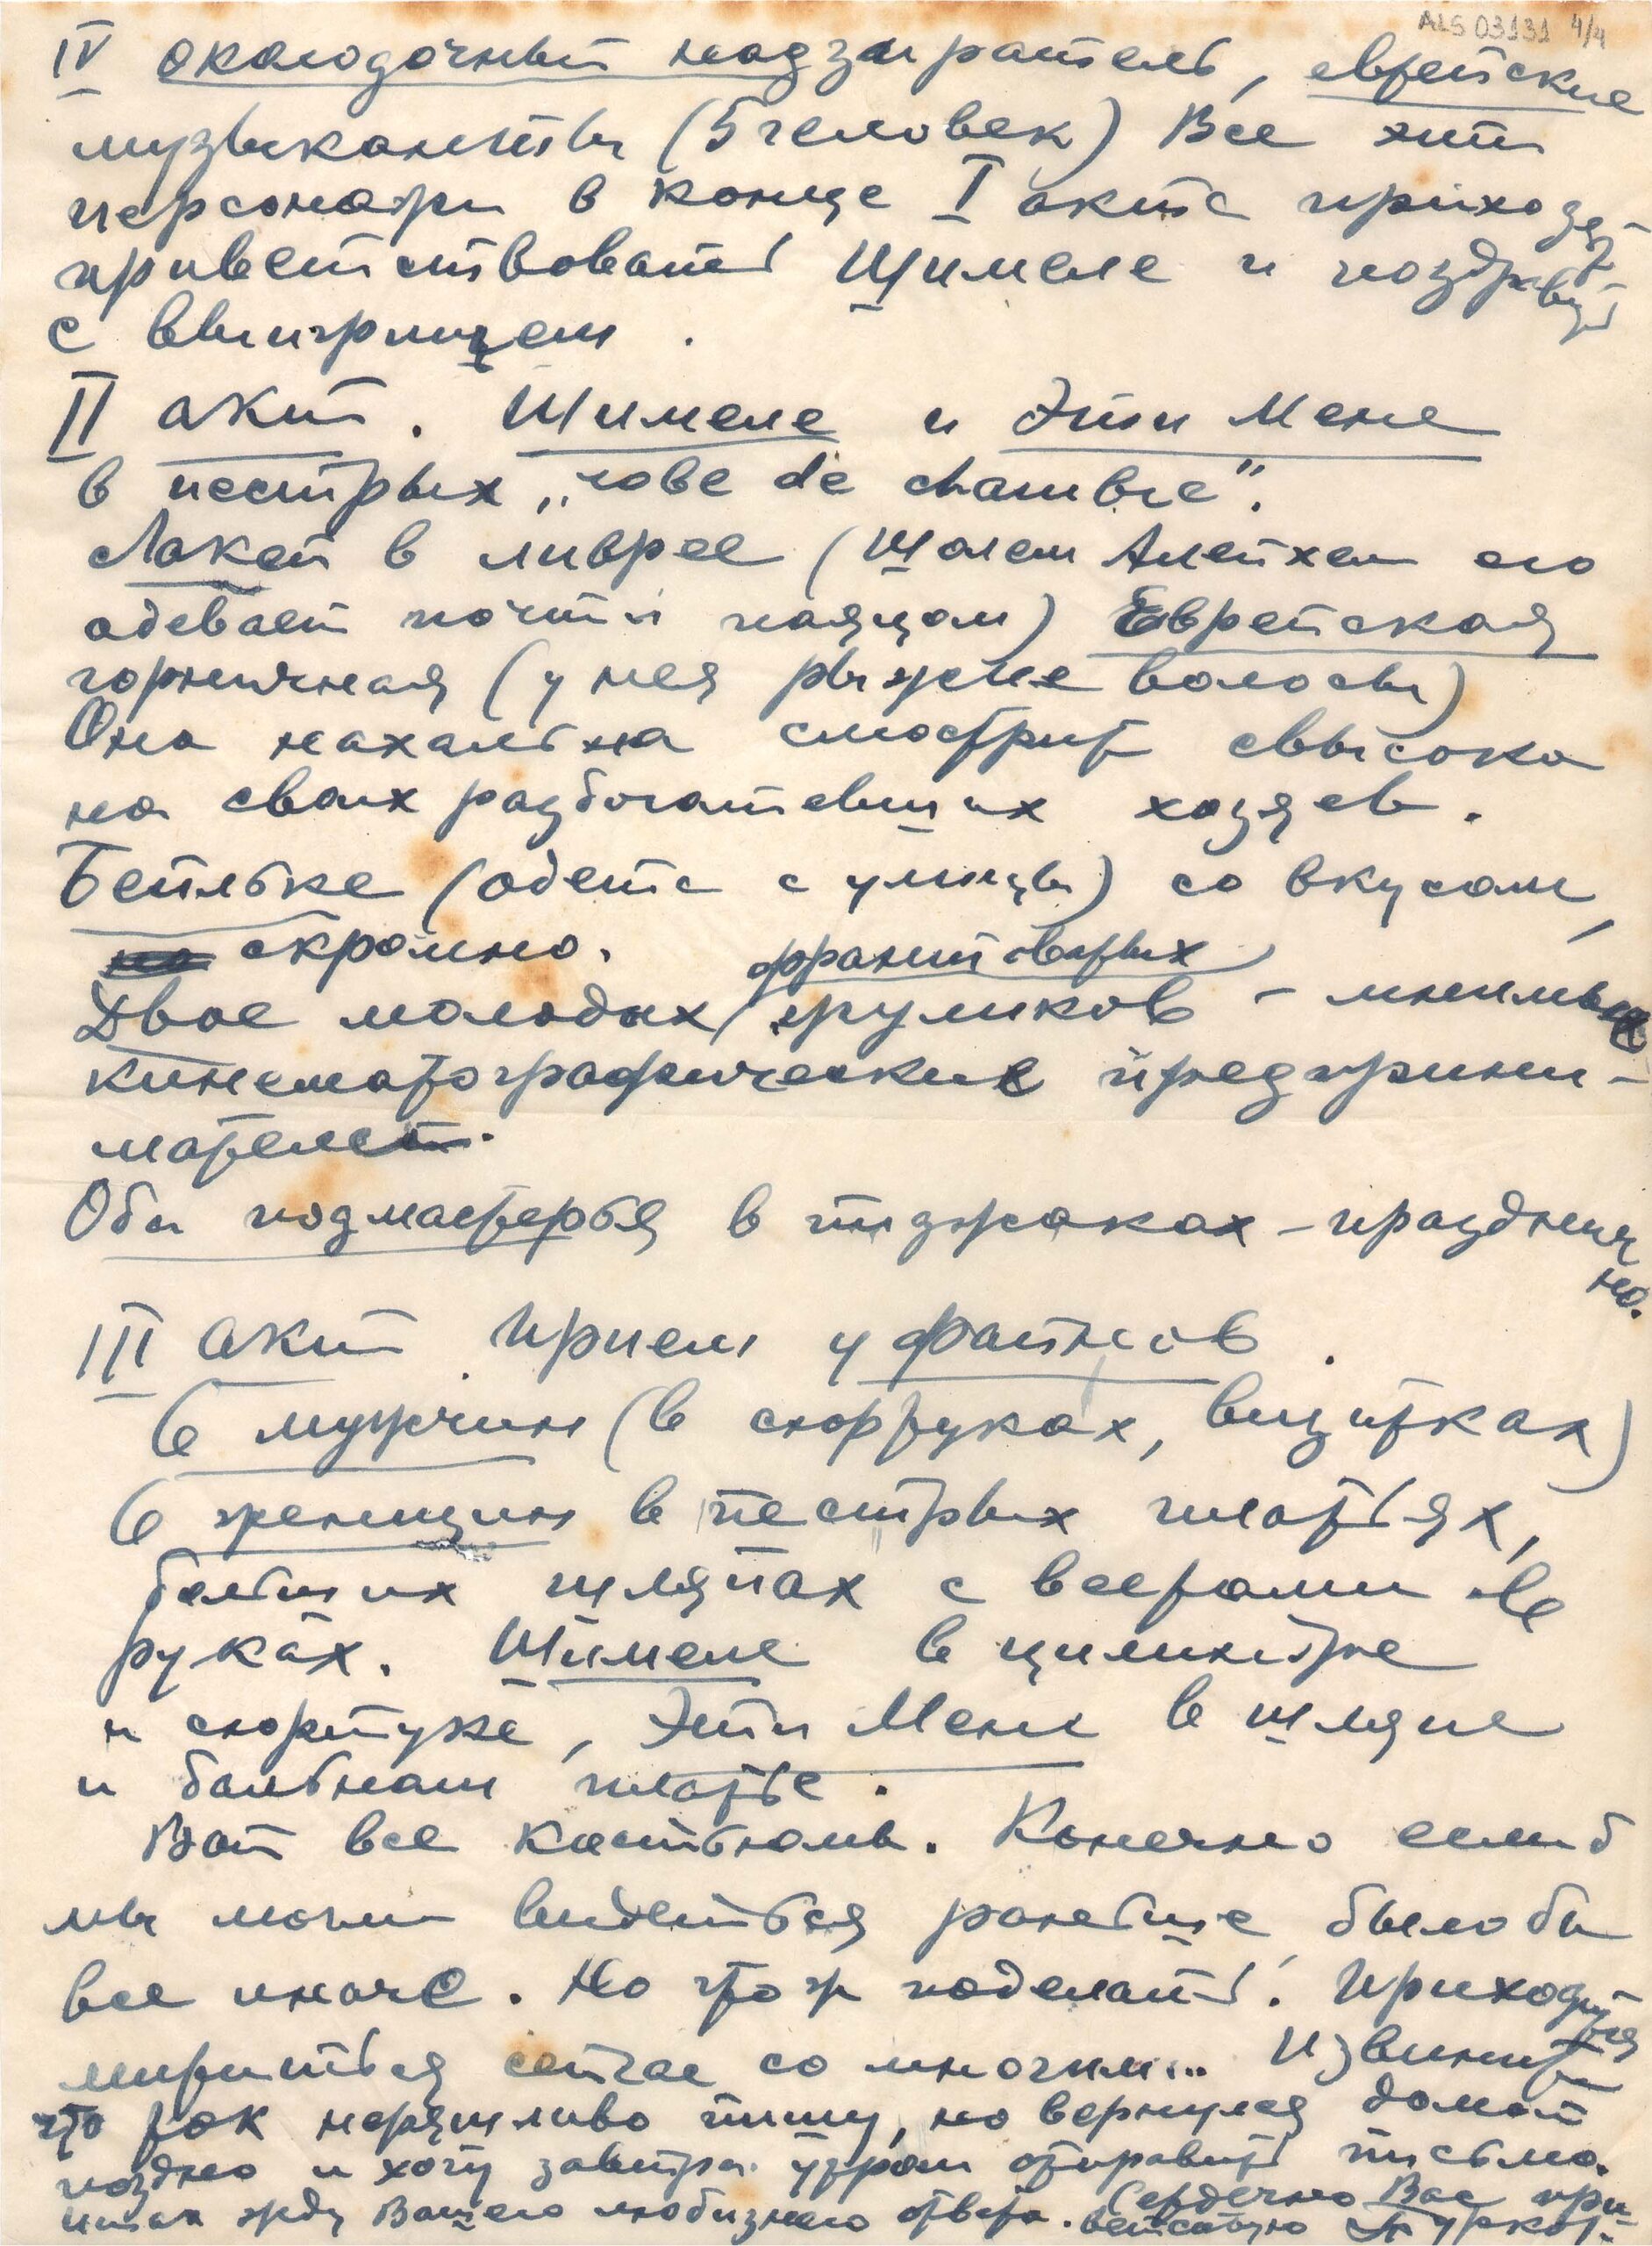 ALS 03131 4/4
IV околодочный надзиратель, еврейские
музыканты (5 человек) Все эти
персонажи в конце I акта приходят
приветствовать Шимеле и поздравить
с выигрышем.
II акт. Шимеле и Эти Мене
в пестрых „robe de chambre".
Лакей в ливрее (Шолом Алейхем его
одевает почти паяцом) Еврейская
горничная (у нея рыжие волосы)
Она нахально смотрит свысока
на своих разбогатевших хозяев.
Бейльке (одета с улицы) со вкусом,
скромно.
франтоватых
Двое молодых жуликов - мнимых
кинематографических предприни-
мателей.
Оба подмастерья в пиджаках - празднич
но.
III акт Прием у Файнов.
6 мужчин (в сюртуках, визитках)
6 женщин в пестрых платьях,
больших шляпах с веерами в
руках. Шимеле в цилиндре
и сюртуке, Эти Мени в шляпе
и бальном платье.
Вот все костюмы. Конечно если б
мы могли видеться раньше, было бы
все иначе. Но что ж поделать! Приходится
мириться сейчас со многим... Извините
что так неряшливо пишу, но вернулся домой
поздно и хочу завтра утром отправить письмо.
Итак жду Вашего любезного ответа. Сердечно Вас при
ветствую Турков.